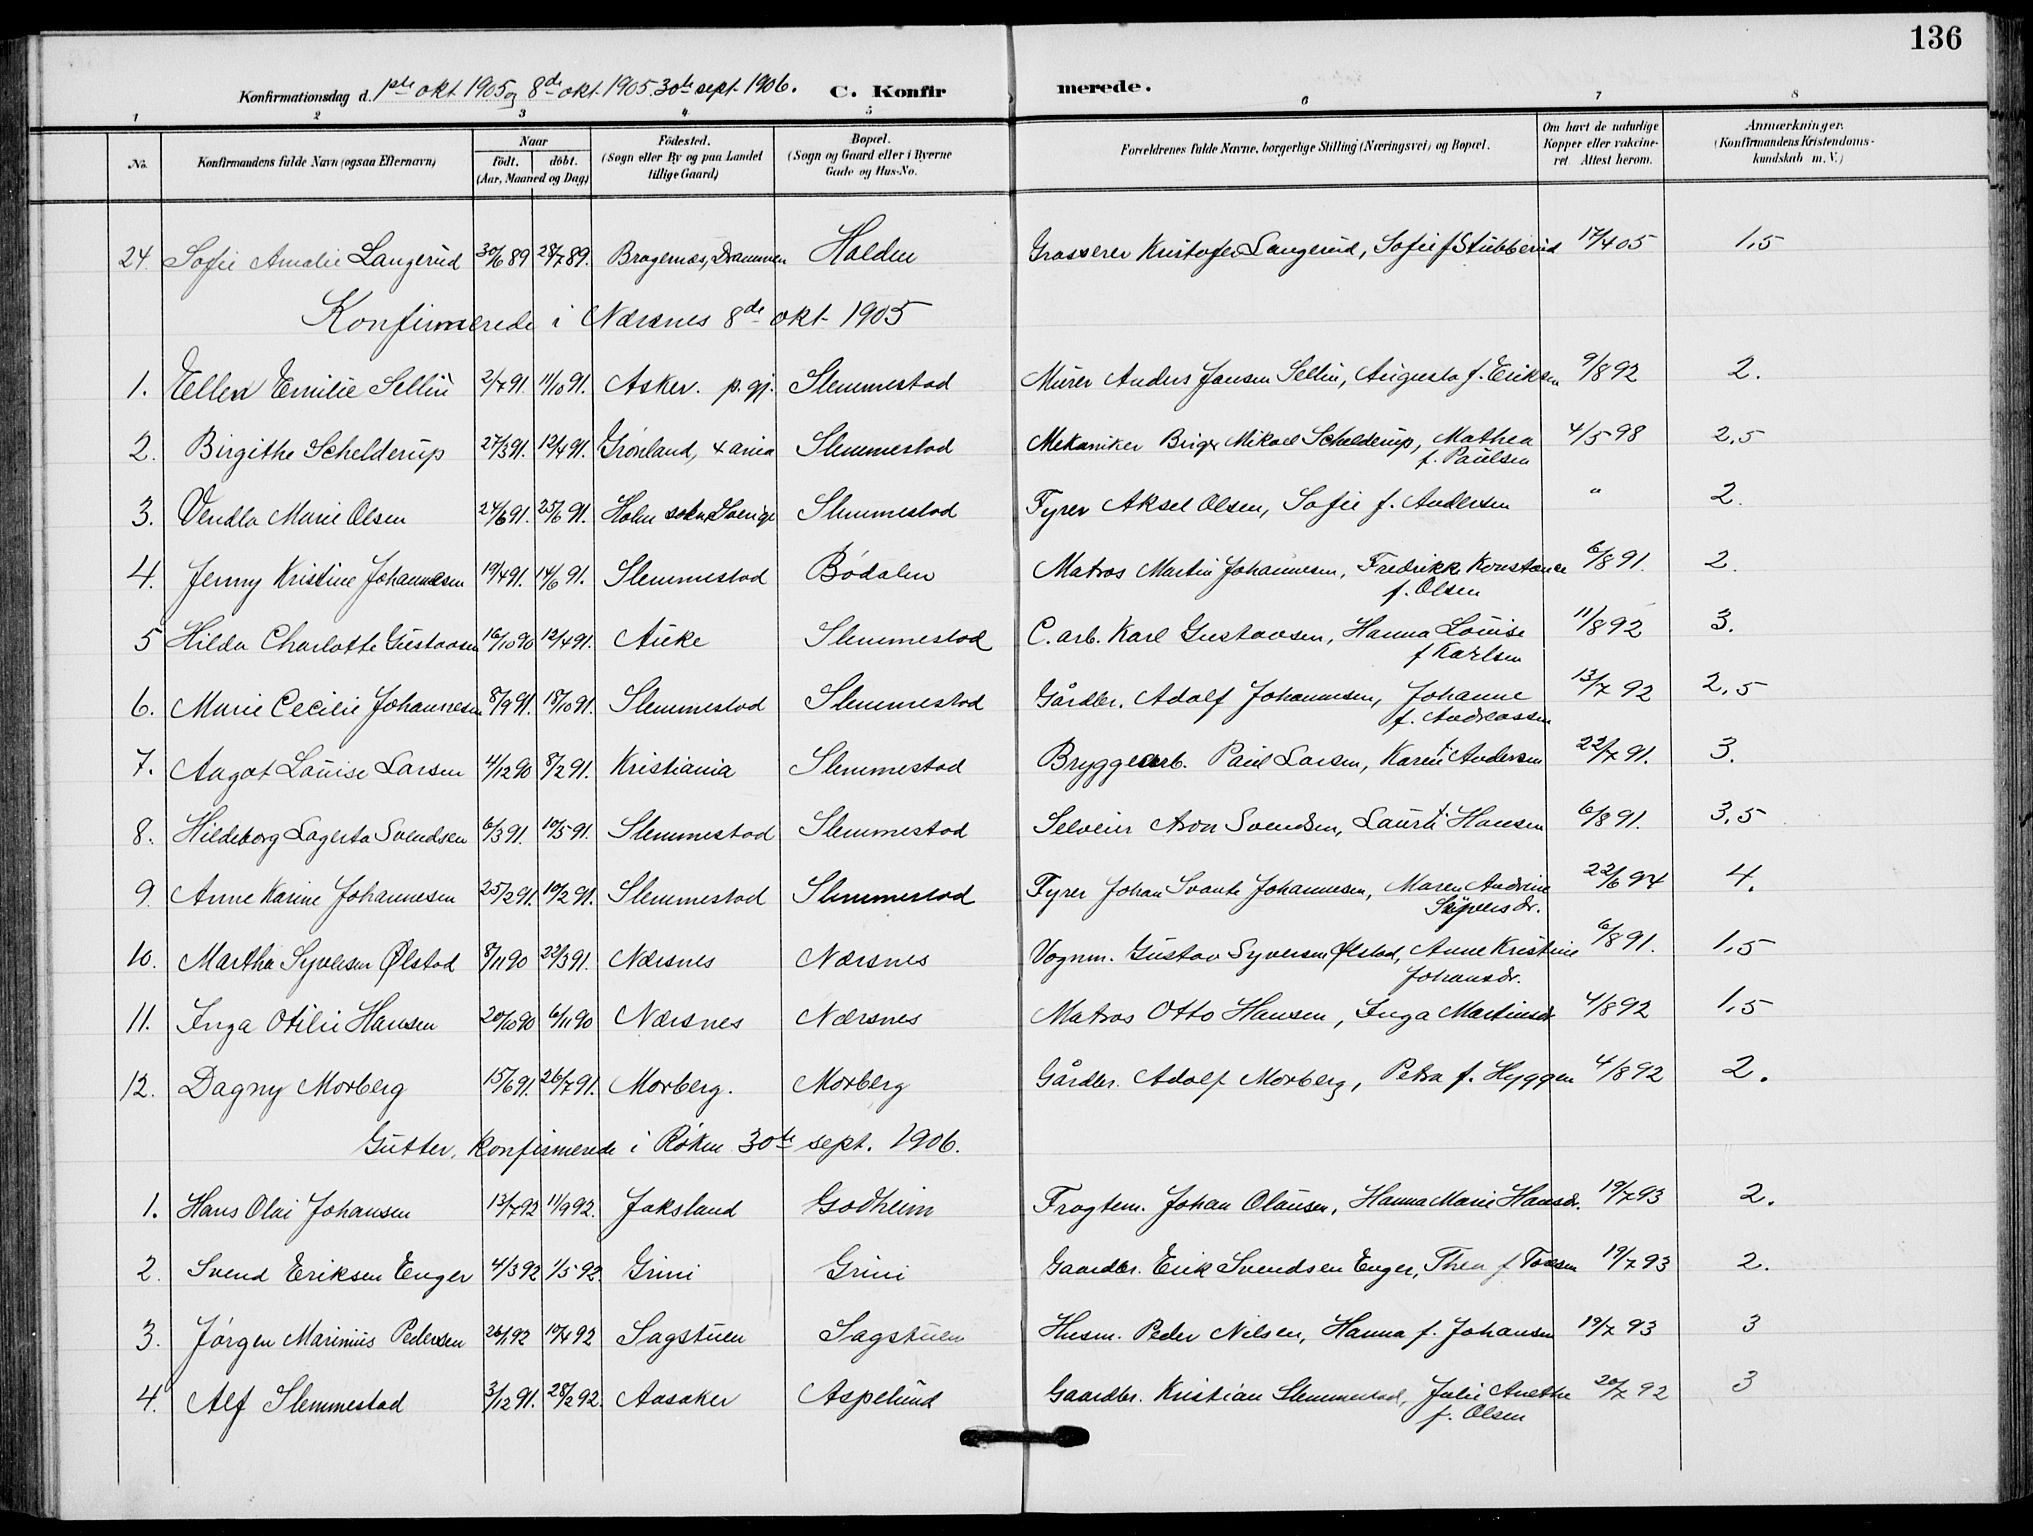 136
Konfirmationsdag d. 1ste okt 1905 og 8de okt. 1905. 30te sept. 1906. C. Konfirmerede.
1 2 3 4 5 6 7 8
No. Konfirmandens fulde Navn (ogsaa Efternavn) Naar födt. döbt. (Aar, Maaned og Dag) Födested. (Sogn eller By og paa Landet tillige Gaard) Bopæl. (Sogn og Gaard eller i Byerne Gade og Hus-No. Forældrenes fulde Navne, borgerlige Stilling (Næringsvei) og Bopæl. Om havt de naturlige Kopper eller vakcineret. Attest herom. Anmærkninger. (Konfirmandens Kristendomskundskab m. V.)
24. Sofie Amalie Langerud 30/6 89 28/7 89. Bragernæs, Drammen Halden Grosserer Kristofer Langerud, Sofie f Stubberud 17/4 05 1,5
Konfirmerede i Nærsnes 8de okt 1905
1. Ellen Emilie Sellin 2/7 91. 11/10 91. Asker. p. gj. Slemmestad Murer Anders Jansen Sellin, Augusta f. Eriksen 9/8 92 2.
2. Birgithe Schelderup 27/3 91. 12/4 91. Grønland, X ania Slemmestad Mekaniker Birger Mikael Schelderup, Mathea f. Paulsen 4/5 98 2,5
3. Vendla Marie Olsen 24/6 91. 25/6 91. Holm sokn, Sverige Slemmestad Fyrer Aksel Olsen, Sofie f. Andersen " 2.
4. Jenny Kristine Johannesen 19/4 91. 14/6 91. Slemmestad Bødalen Matros Martin Johannesen, Fredrikke Konstance f. Olsen 6/8 91. 2.
5 Hilda Charlotte Gustavsen 16/10 90 12/4 91. Auke Slemmestad C. arb. Karl Gustavsen, Hanna Louise f Karlsen 11/8 92 3.
6. Marie Cecilie Johannesen 8/9 91. 18/10 91. Slemmestad Slemmestad Gårdbr. Adolf Johannesen, Johanne f. Andreassen 13/7 92 2,5
7. Aagot Louise Larsen 4/12 90 8/2 91. Kristiania Slemmestad Bryggearb. Paul Larsen, Karen f Andersen 22/7 91. 3.
8. Hildeborg Lagerta Svendsen 6/3 91. 10/5 91. Slemmestad Slemmestad Selveier Aron Svendsen, Laura f Hansen 6/8 91. 3,5
9 Anne Karine Johannesen 25/2 91. 10/2 91. Slemmestad Slemmestad Fyrer Johan Svante Johannesen, Maren Andrine Syversdr. 22/6 94 4.
10. Martha Syversen Ølstad 8/11 90 22/3 91. Nærsnes Nærsnes Vognm. Gustav Syversen Ølstad, Anne Kristine Johansdr. 6/8 91. 1,5
11. Inga Otilie Hansen 20/10 90 6/11 90 Nærsnes Nærsnes Matros Otto Hansen, Inga Martinsdr 4/8 92 1,5
12. Dagny Morberg 15/6 91. 26/7 91. Morberg. Morberg Gårdbr. Adolf Morberg, Petra f. Hyggen 4/8 92 2.
Gutter, konfirmerede i Røken 30te sept. 1906.
1. Hans Olai Johansen 13/7 92 11/9 92. Jaksland Godheim Frogtem. Johan Olausen, Hanna Marie Hansdr. 19/7 93 2.
2. Svend Eriksen Enger 4/3 92 1/5 92 Grini Grini Gaardbr. Erik Svendsen Enger, Thea f 19/7 93 2.
3. Jørgen Marinius Pedersen 26/1 92 10/4 92 Sagstuen Sagstuen Husm. Peder Nilsen, Hanna f. Johansen 19/7 93 3
4. Alf Slemmestad 3/12 91. 28/2 92. Aasaker Aspelund Gaardbr. Kristian Slemmestad, Julie Anethe f. Olsen 20/7 92 3